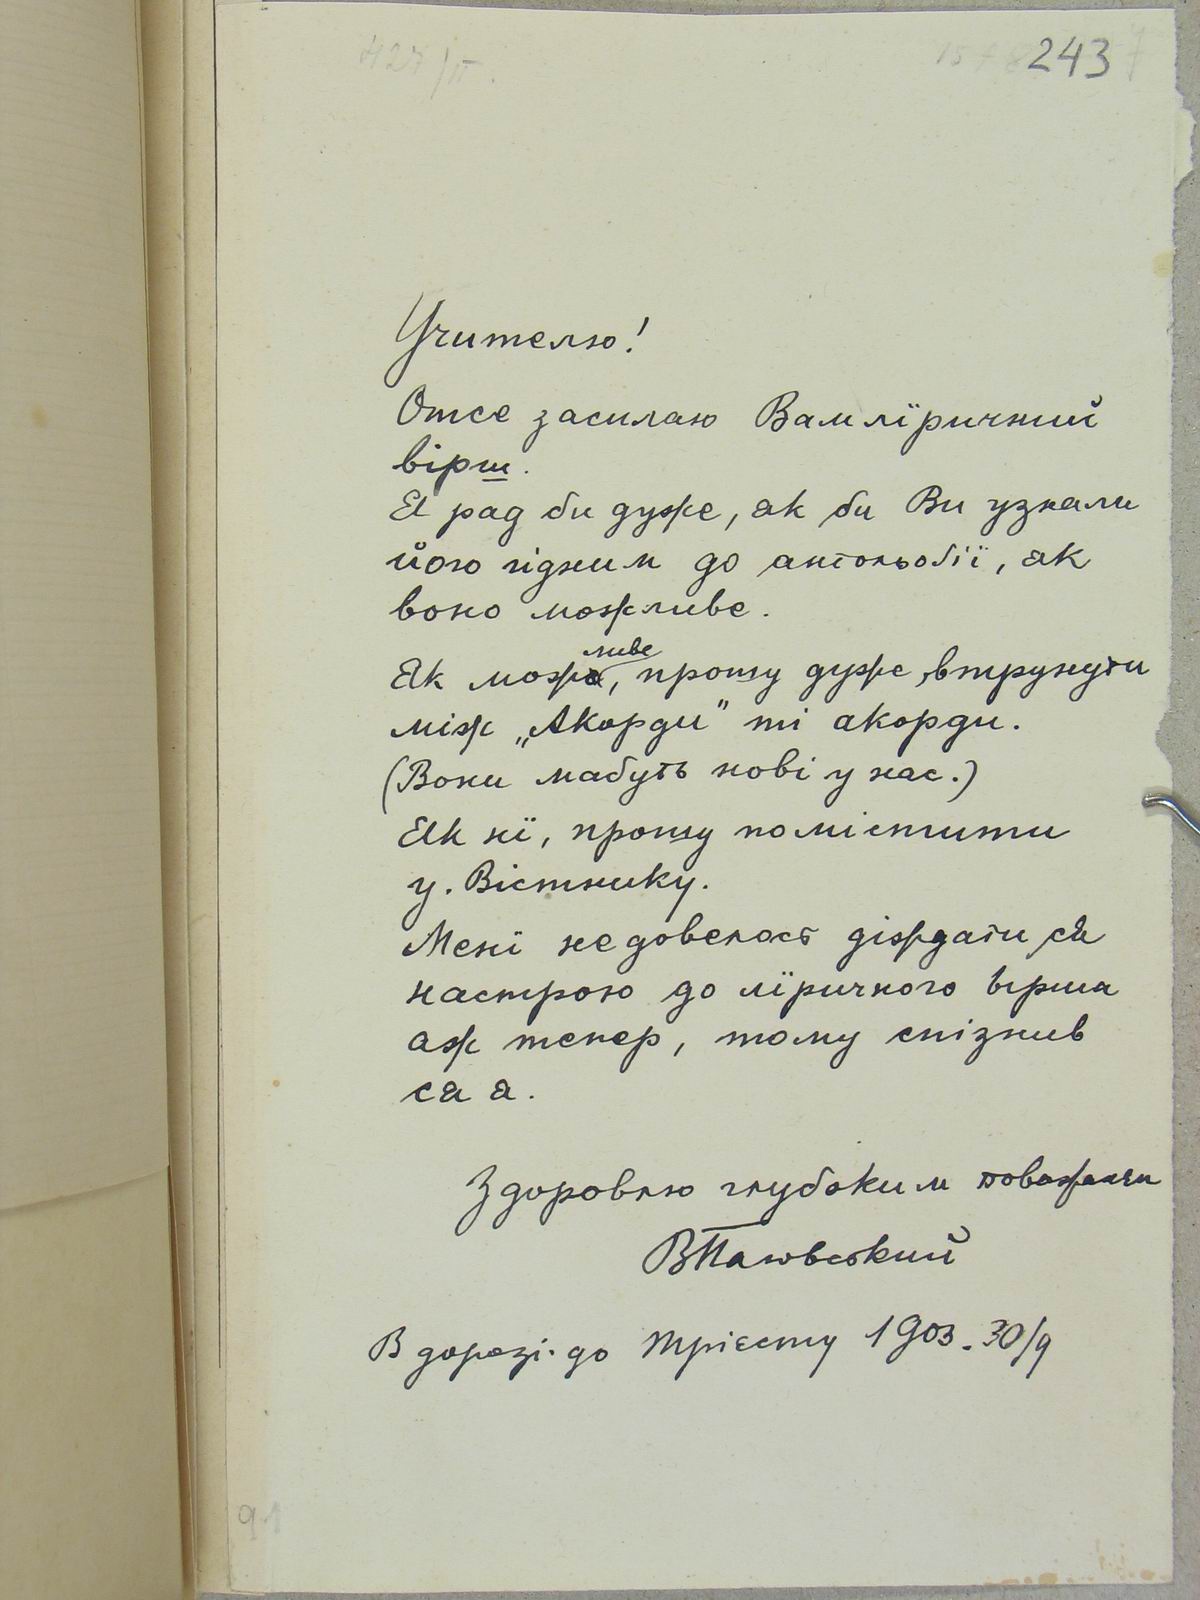 243
Учителю!
Отсе засилаю Вам лїричний
вірш.
Я рад би дуже, як би Ви узнали
його гідним до антольоґії, як
воно можливе.
ливе
Як може, прошу дуже, втрунути
між „Акорди" ті акорди.
(Вони мабуть нові у нас.)
Як нї, прошу помістити
у. Вістнику.
Менї не довелось діждати ся
настрою до лїричного вірша
аж тепер, тому спізнив
ся я.
Здоровлю глубоким поважанєм
В Пачовський
В дорозі до Трієсту 1903. 30/9